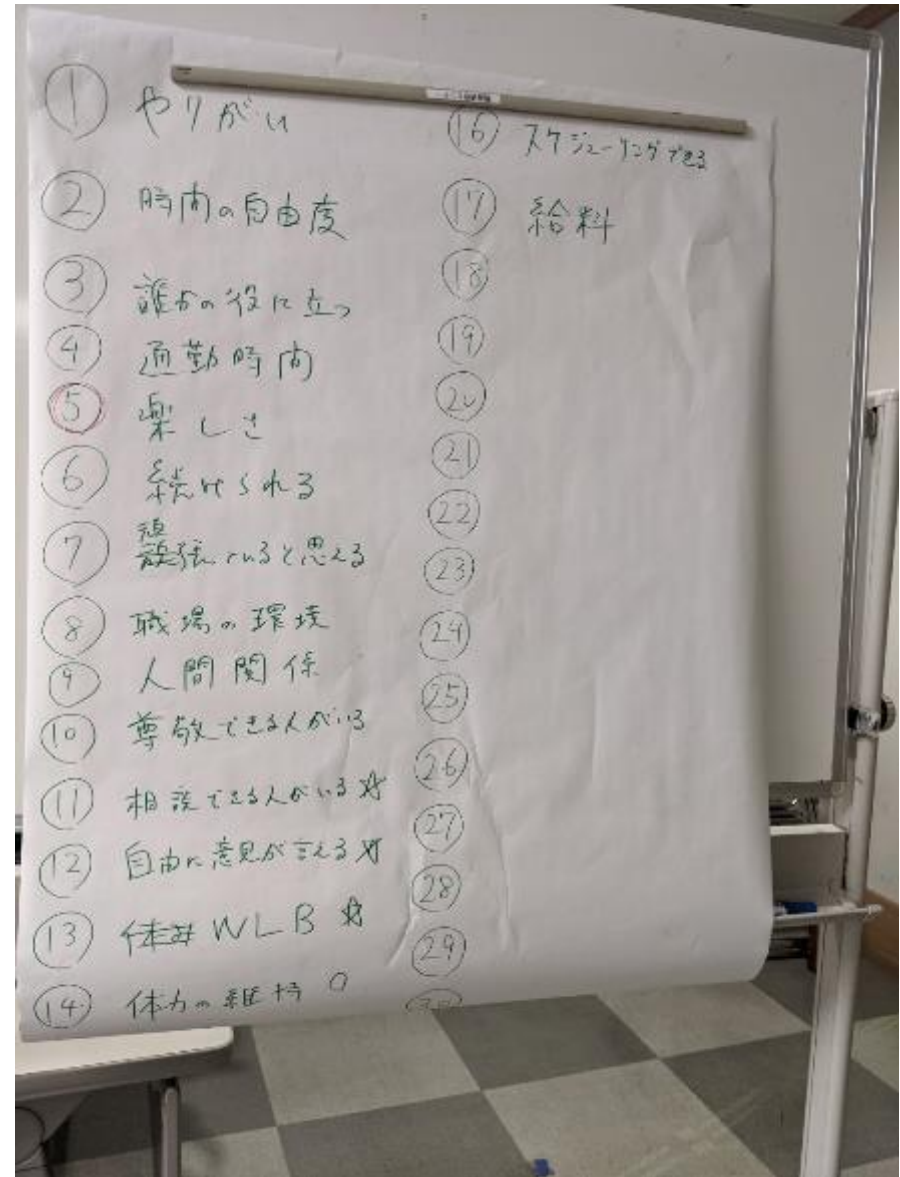 ① やりがい
② 時間の自由度
③ 誰かの役に立つ
④ 通勤時間
⑤ 楽しさ
⑥ 続けられる
⑦ 頑張れると思える
⑧ 職場の環境
⑨ 人間関係
⑩ 尊敬できる人がいる
⑪ 相談できる人がいる ☆
⑫ 自由に意見が言える ☆
⑬ WLB ☆
⑭ 体力の維持 ○
⑯ スケジューリングできる
⑰ 給料
⑱
⑲
⑳
㉑
㉒
㉓
㉔
㉕
㉖
㉗
㉘
㉙